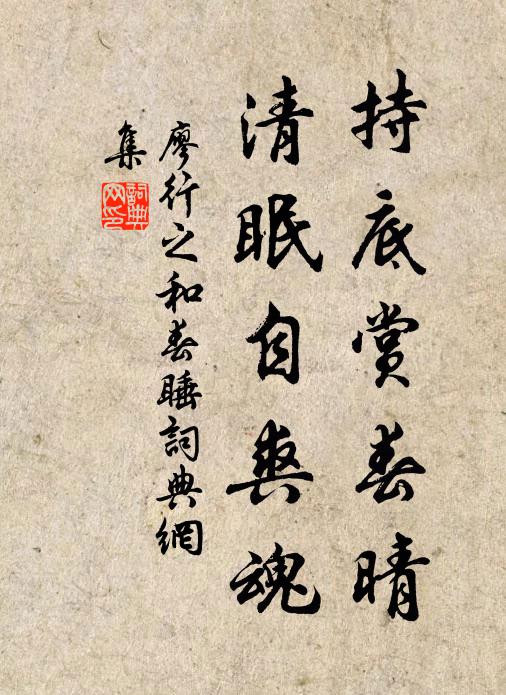 持底賞春晴
清眠自爽魂
廖行之和春睡詞典網
集
詞典
网印